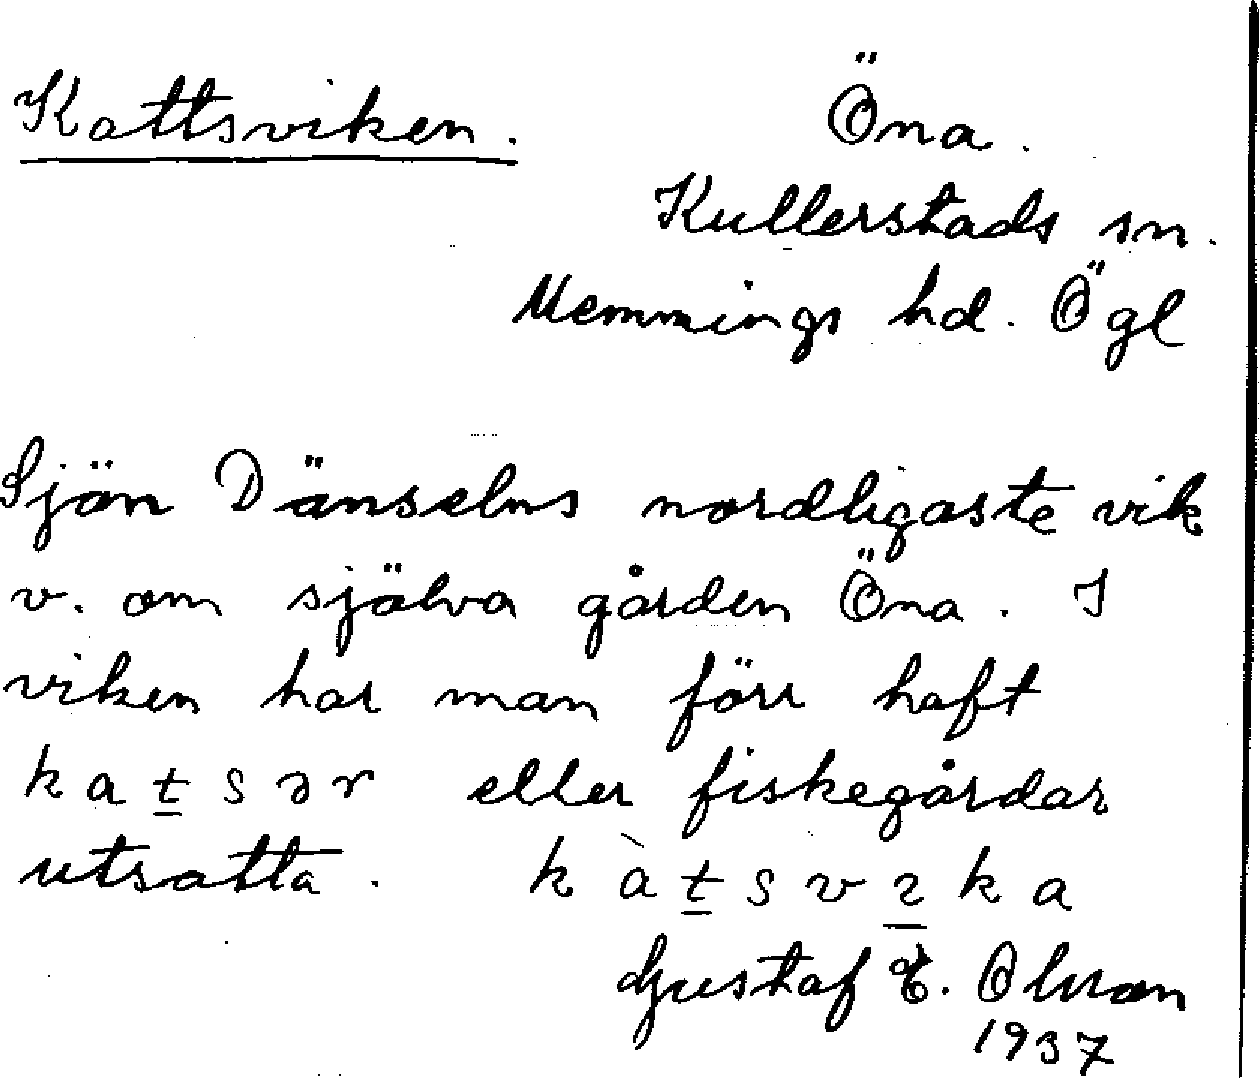 Kattsviken. Öna.
Kullerstads sn.
Memmings hd. Ögl
Sjön Dänselns nordligaste vik
v. om själva gården Öna. I
viken har man förr haft
katsər eller fiskegårdar
utsatta. kàtsvıka
Gustaf E. Olsson
1937